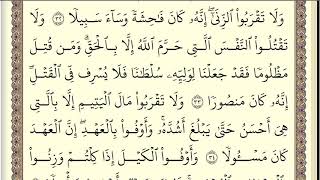 وَلَا تَقْرَبُوا۟ ٱلزِّنَىٰٓ ۖ إِنَّهُۥ كَانَ فَـٰحِشَةً وَسَآءَ سَبِيلًا ٣٢ وَلَا
تَقْتُلُوا۟ ٱلنَّفْسَ ٱلَّتِى حَرَّمَ ٱللَّهُ إِلَّا بِٱلْحَقِّ ۗ وَمَن قُتِلَ
مَظْلُومًا فَقَدْ جَعَلْنَا لِوَلِيِّهِۦ سُلْطَـٰنًا فَلَا يُسْرِف فِّى ٱلْقَتْلِ ۖ
إِنَّهُۥ كَانَ مَنصُورًا ٣٣ وَلَا تَقْرَبُوا۟ مَالَ ٱلْيَتِيمِ إِلَّا بِٱلَّتِى
هِىَ أَحْسَنُ حَتَّىٰ يَبْلُغَ أَشُدَّهُۥ ۚ وَأَوْفُوا۟ بِٱلْعَهْدِ ۖ إِنَّ ٱلْعَهْدَ
كَانَ مَسْـُٔولًا ٣٤ وَأَوْفُوا۟ ٱلْكَيْلَ إِذَا كِلْتُمْ وَزِنُوا۟